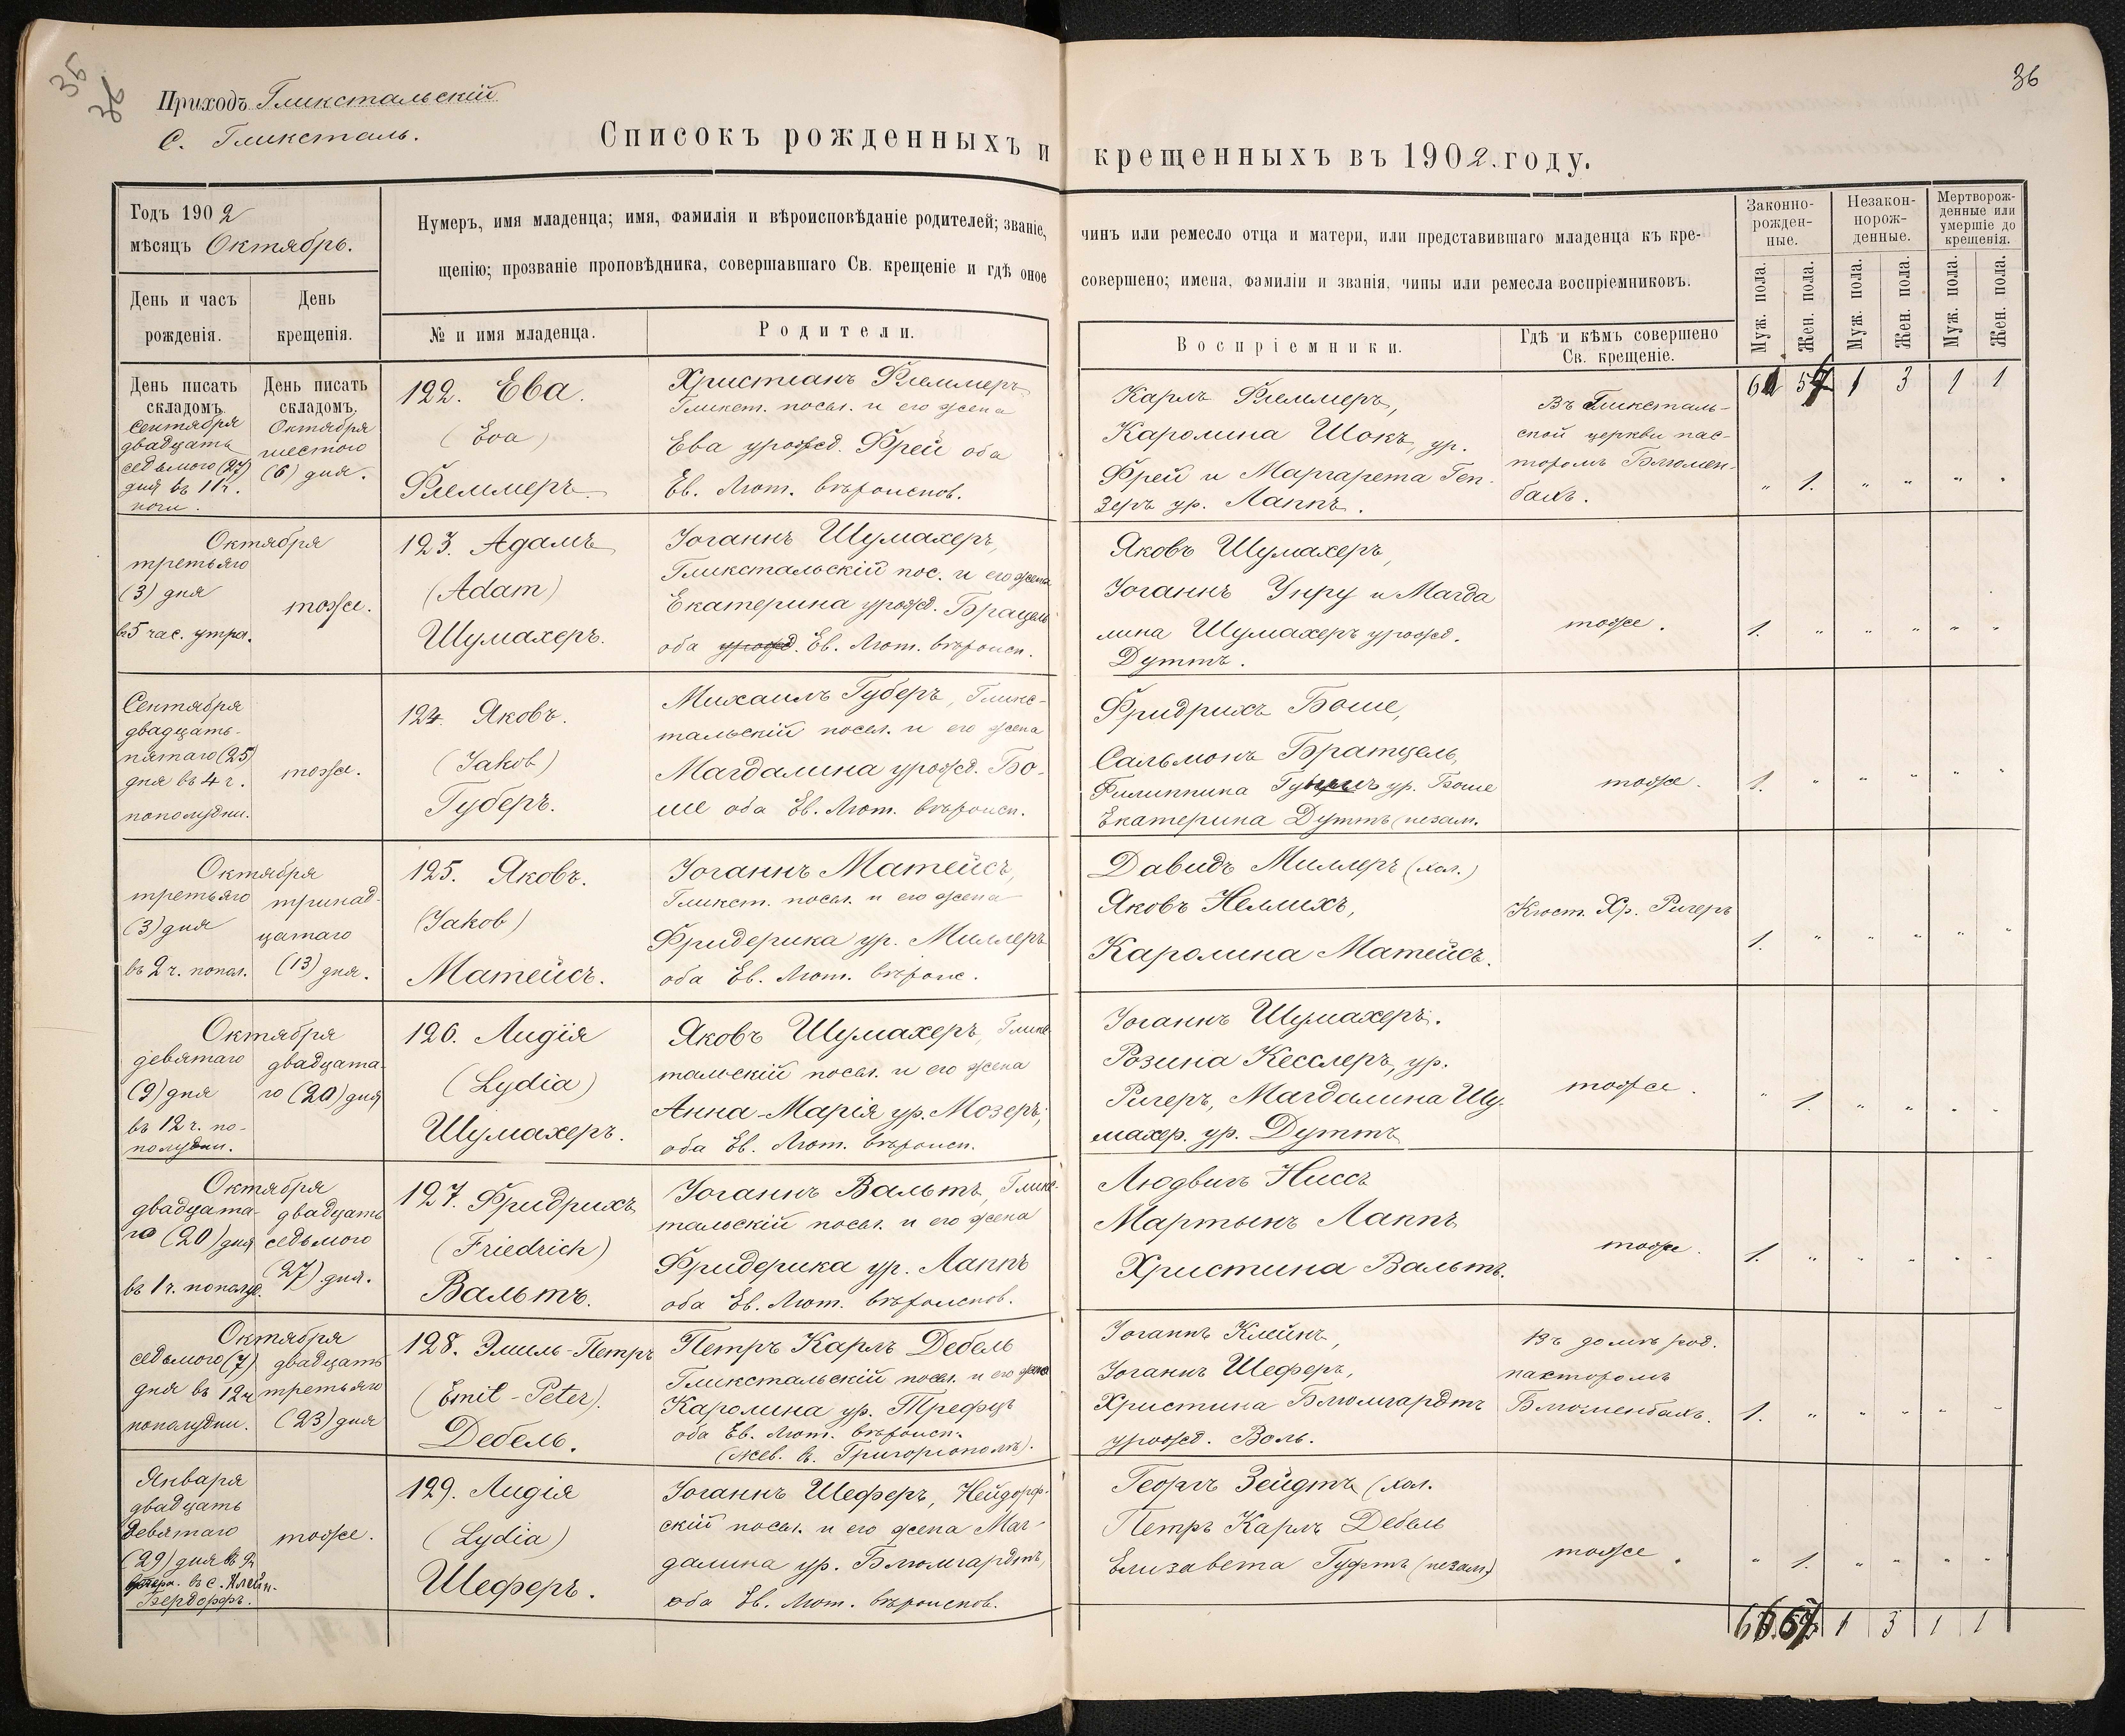 35
36
36
Приходъ Гликстальскій
С. Гликсталь.
Списокъ рожденныхъ и крещенныхъ въ 1902. году.
Годъ 1902
мѣсяцъ Октябрь.
День и часъ
рожденія.
День
крещенія.
Нумеръ, имя младенца; имя, фамилія и вѣроисповѣданіе родителей; званіе,
щенію; прозваніе проповѣдника, совершавшаго Св. крещеніе и гдѣ оное
№ и имя младенца.
Родители.
чинъ или ремесло отца и матери, или представившаго младенца къ кре-
совершено; имена, фамиліи и званія, чины или ремесла воспріемниковъ.
Воспріемники.
Гдѣ и кѣмъ совершено
Св. крещеніе.
Законно-
рожден-
ные.
Незакон-
норож-
денные.
Мертворож-
денные или
умершіе до
крещенія.
Муж. пола.
Жен. пола.
Муж. пола.
Жен. пола.
Муж. пола.
Жен. пола.
1 3 1 1
День писать
складомъ.
Сентября
двадцать
седьмого (27)
дня въ 11ч.
ночи.
День писать
складомъ.
Октября
шестого
(6) дня.
122. Ева.
(Eva)
Флеммеръ
Христіанъ Флеммеръ
Гликст. посел. и его жена
Ева урожд. Фрей оба
Ев. Лют. вѣроиспов.
Карлъ Флеммеръ,
Каролина Шокъ, ур.
Фрей и Маргарета Ген-
зеръ ур. Лаппъ.
Въ Гликсталь-
ской церкви пас-
торомъ Блюмен-
бахъ.
" 1. " " " "
Октября
третьяго
(3) дня
въ 5 час. утра.
тоже.
123. Адамъ
(Adam)
Шумахеръ.
Іоганнъ Шумахеръ,
Гликстальскій пос. и его жена
Екатерина урожд. Брацель
оба урожд. Ев. Лют. вѣроисп.
Яковъ Шумахеръ,
Іоганнъ Унру и Магда
лина Шумахеръ урожд.
Дуттъ.
тоже.
1. " " " " "
Сентября
двадцать-
пятаго (25)
дня въ 4 ч.
пополудни.
тоже.
124. Яковъ.
(Jakob)
Губеръ.
Михаилъ Губеръ, Гликс-
тальскій посел. и его жена
Магдалина урожд. Бо-
ше оба Ев. Лют. вѣроисп.
Фридрихъ Боше,
Сальмонъ Братцель,
Филиппина ур. Боше
Екатерина Дуттъ (незам.
тоже.
1. " " " " "
Октября
третьяго
(3) дня
въ 2 ч. попол.
тринад-
цатаго
(13) дня.
125. Яковъ.
(Jakob)
Матейсъ.
Іоганнъ Матейсъ,
Гликст. посел. и его жена
Фридерика ур. Миллеръ
оба Ев. Лют. вѣроис.
Давидъ Миллеръ (хол.)
Яковъ Неллихъ,
Каролина Матейсъ.
Кюст. Хр. Ригеръ
1. " " " " "
Октября
девятаго
(9) дня
въ 12 ч. по-
полудни.
двадцата-
го (20) дня
126. Лидія
(Lydia)
Шумахеръ.
Яковъ Шумахеръ, Гликс
тальскій посел. и его жена
Анна-Марія ур. Мозеръ,
оба Ев. Лют. вѣроисп.
Іоганнъ Шумахеръ.
Розина Кесслеръ, ур.
Ригеръ, Магдалина Шу-
махер. ур. Дуттъ
тоже.
" 1. " " " "
Октября
двадцата-
го (20) дня
въ 1 ч. пополуд.
двадцать
седьмого
(27) дня.
127. Фридрихъ
(Friedrich)
Вальтъ.
Іоганнъ Вальтъ, Гликс-
тальскій посел. и его жена
Фридерика ур. Лаппъ
оба Ев. Лют. вѣроиспов.
Людвигъ Ниссъ
Мартынъ Лаппъ
Христина Вальтъ.
тоже.
1. " " " " "
Октября
седьмого (7)
дня въ 12ч
пополудни.
двадцать
третьяго
(23) дня
128. Эмиль-Петръ
(Emil-Peter).
Дебель.
Петръ Карлъ Дебель
Гликстальскій посел. и его жена
Каролина ур. Трефцъ
оба Ев. Лют. вѣроисп.
(жев. въ Григоріополѣ).
Іоганнъ Клейнъ,
Іоганнъ Шеферъ,
Христина Блюмгардтъ
урожд. Воль.
Въ домѣ род.
пасторомъ
Блюменбахъ.
1. " " " " "
Января
двадцать
девятаго
(29) дня въ 9ч
вечера. въ с. Клейн-
Бергдорфъ.
тоже.
129. Лидія
(Lydia)
Шеферъ.
Іоганнъ Шеферъ, Нейдорф-
скій посел. и его жена Маг-
далина ур. Блюмгардтъ,
оба Ев. Лют. вѣроиспов.
Георгъ Зейдтъ (хол.
Петръ Карлъ Дебель
Елизавета Гуфтъ (незам.)
тоже.
" 1. " " " "
1 3 1 1